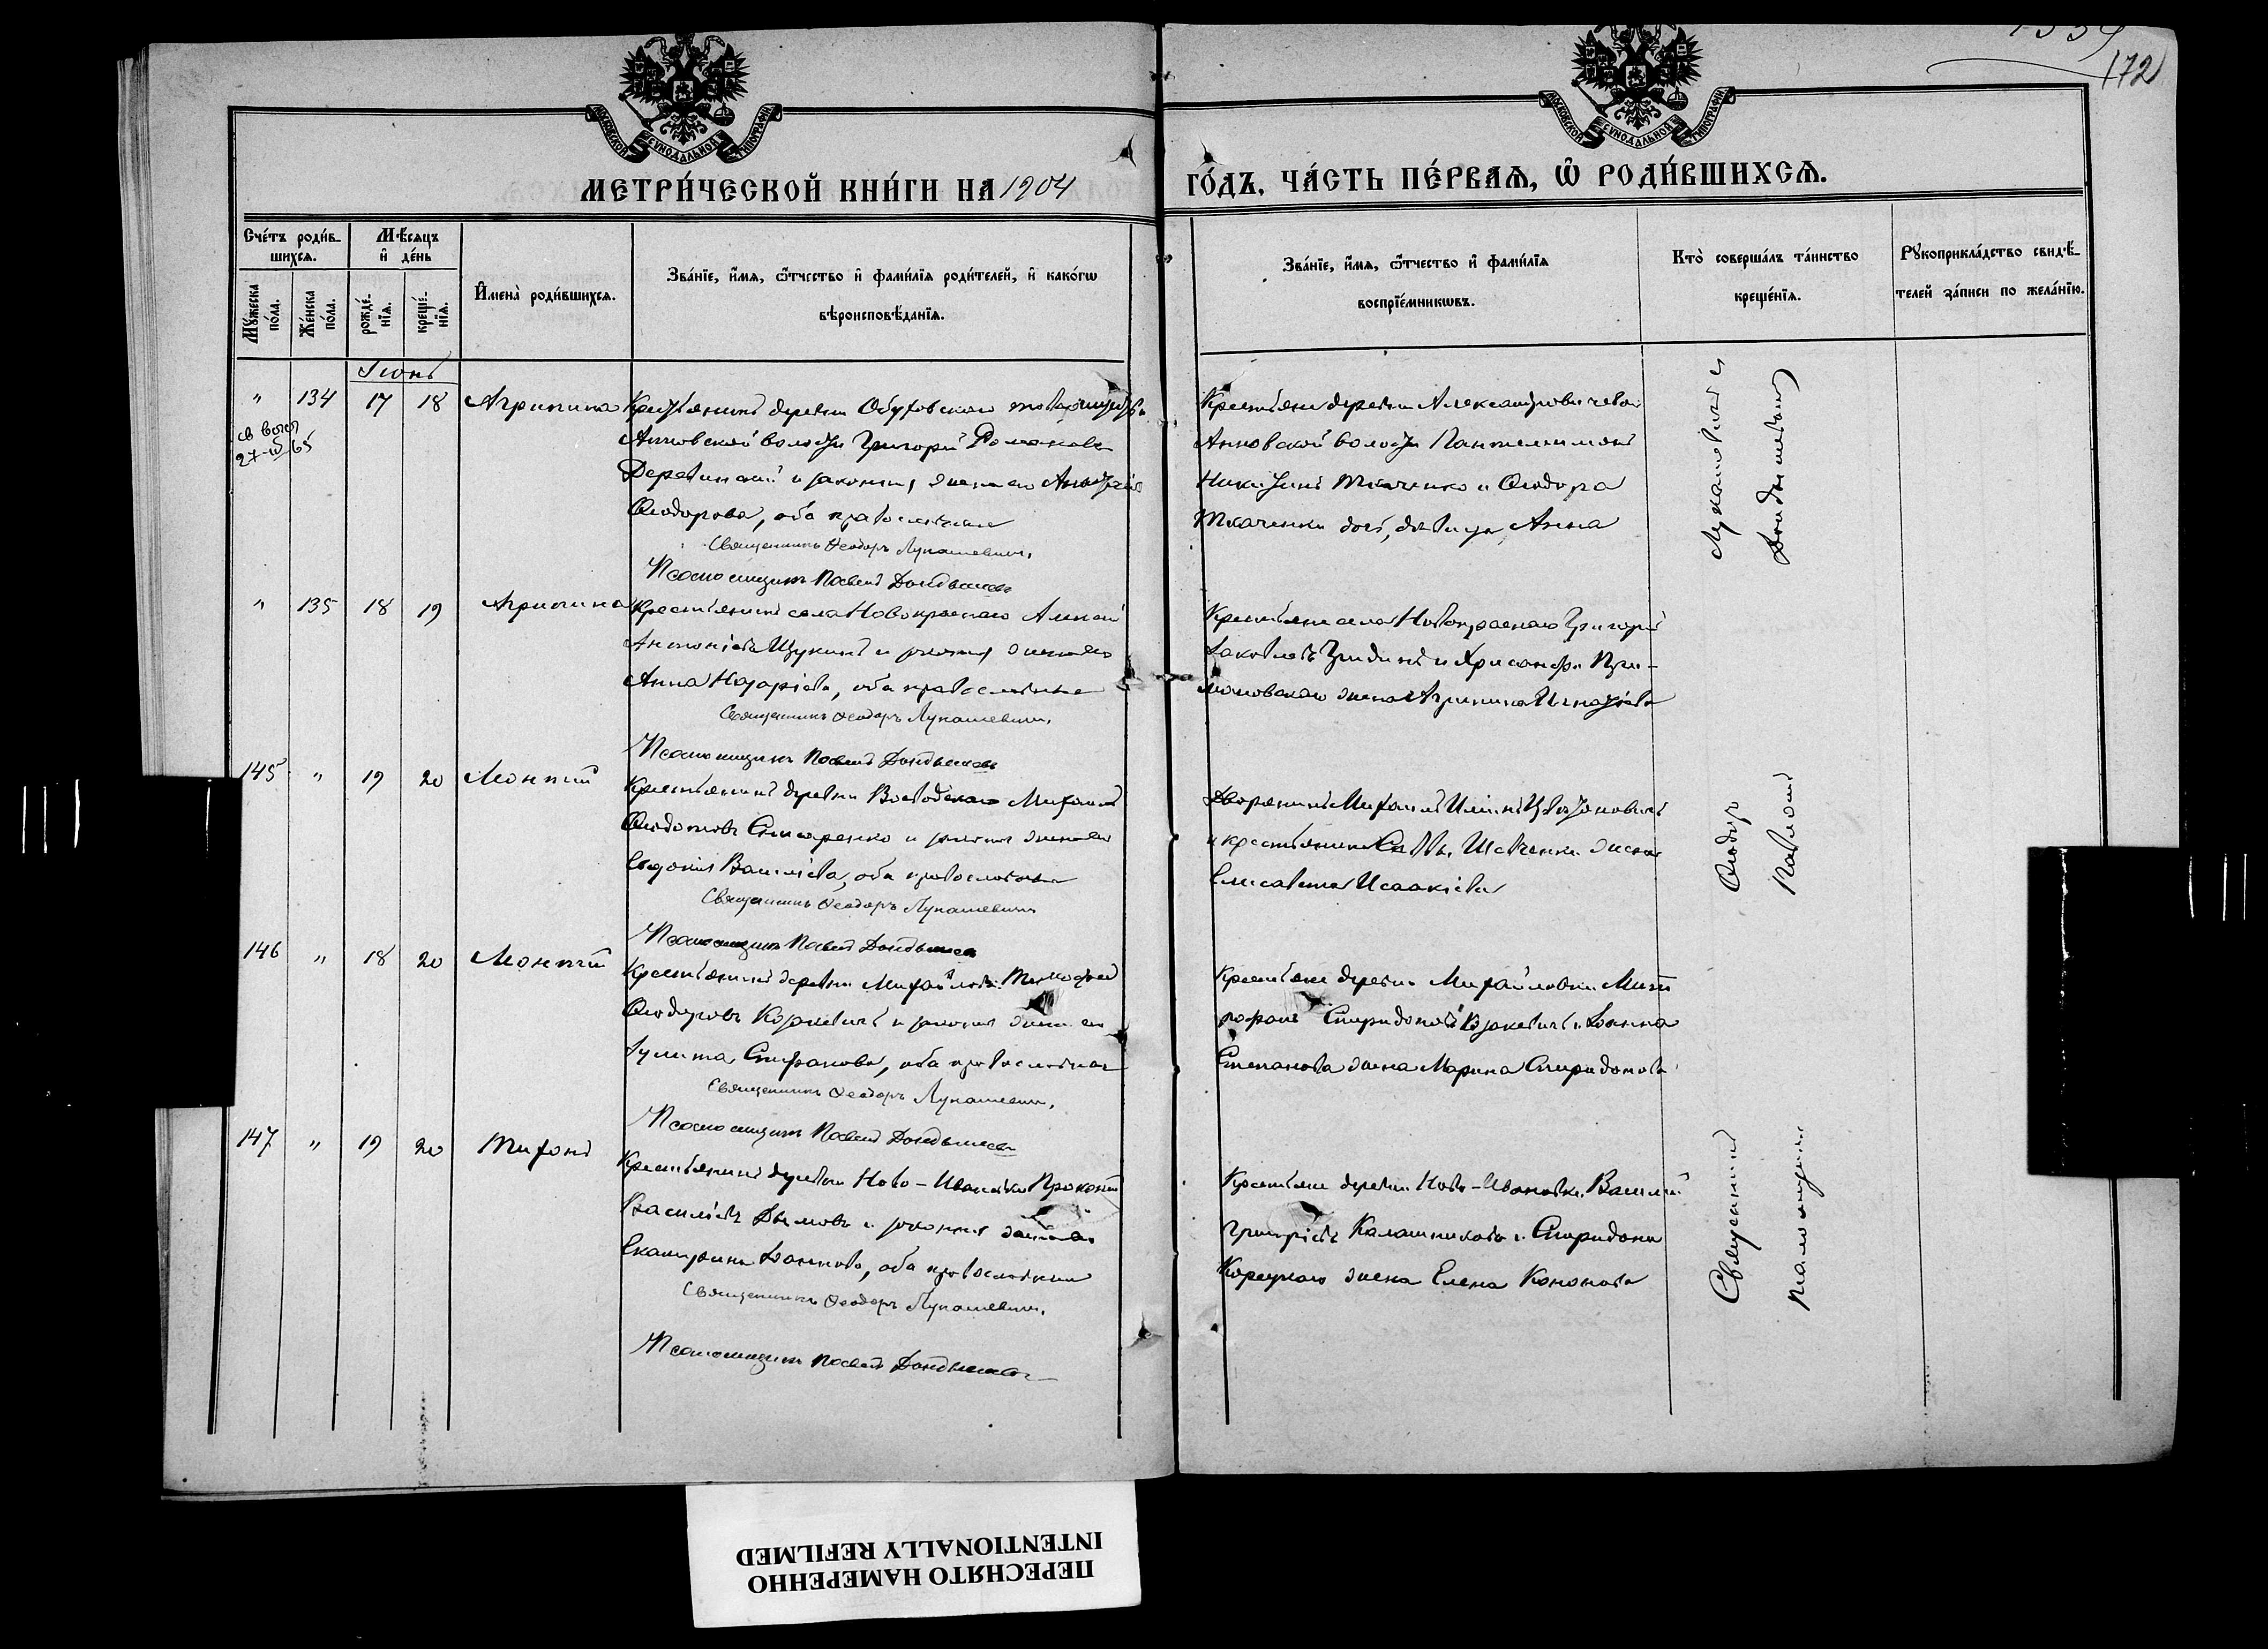 172
МОСКОВСКОЙ СѴНОДАЛЬНОЙ ТИПОГРАФІИ
МОСКОВСКОЙ СѴНОДАЛЬНОЙ ТИПОГРАФІИ
МЕТРИ́ЧЕСКОЙ КНИ́ГИ НА 1904
ГО́ДЪ, ЧА́СТЬ ПЕ́РВАѦ, Ѡ҆ РОДИ́ВШИХСѦ.
Сче́тъ роди́в-
шихсѧ.
Мꙋ́жеска по́ла.
Же́нска по́ла.
Мѣ́сѧцъ
и҆ де́нь
рожде́-
нїѧ.
креще́-
нїѧ.
И҆мена̀ роди́вшихсѧ.
Зва́нїе, и҆́мѧ, ѻ҆́тчество и҆ фами́лїѧ роди́телей, и҆ како́гѡ
вѣроисповѣ́данїѧ.
Зва́нїе, и҆́мѧ, ѻ҆́тчество и҆ фами́лїѧ
воспрїе́мникѡвъ.
Кто̀ соверша́лъ та́инство
креще́нїѧ.
Рꙋкоприкла́дство свидѣ́-
телей за́писи по жела́нїю.
Іюнь
" 134 17 18 Агрипина
27-IV 65
Крестьянинъ деревни Обуховского
Анновской волости Григорій Романовъ
Деревинскій и законная жена его Анастасія
Ѳеодорова, оба православные
Священникъ Ѳеодоръ Лукашевичъ.
Псаломщикъ Павелъ
Крестьяне деревни Александровичева
Анновской волости Пантелеимонъ
Никитинъ Ткаченко и Ѳеодора
Ткаченки дочь, девица Анна
" 135 18 19 Агрипина
Крестьянинъ села Новокраснаго Алексей
Антоніевъ Щукинъ и законная жена его
Анна Назаріева, оба православные
Священникъ Ѳеодоръ Лукашевичъ.
Псаломщикъ Павелъ
Крестьяне села Новокраснаго Григорій
Іаковлевъ Гридинъ и Хрисанфа При-
жена Агрипина Игнатіева
145 " 19 20 Леонтій
Крестьянинъ деревни Воеводскаго Михаилъ
Ѳеодотовъ и законная жена его
Евдокія Василіева, оба православные
Священникъ Ѳеодоръ Лукашевичъ
Псаломщикъ Павелъ
Дворянинъ Михаилъ Иліинъ
и крестьянина Саввы Шевченки жена
Елисавета Исаакіева
146 " 18 20 Леонтій
Крестьянинъ деревни Михайловки Тимоѳей
Ѳеодоровъ Козакевичъ и законная жена его
Іулита Стефанова, оба православные
Священникъ Ѳеодоръ Лукашевичъ.
Псаломщикъ Павелъ
Крестьяне деревни Михайловки Мит-
рофанъ Спиридоновъ Козакевичъ и Іоанна
Степанова жена Марина Спиридонова
147 " 19 20 Тихонъ
Крестьянинъ деревни Ново-Ивановки Прокопій
Василіевъ Дымовъ и законная жена его
Екатерина Іоаннова, оба православные
Священникъ Ѳеодоръ Лукашевичъ.
Псаломщикъ Павелъ
Крестьяне деревни Ново-Ивановки Василій
Григоріевъ Калашниковъ и Спиридона
Корецкаго жена Елена Кононова
Священникъ Ѳеодоръ Лукашевичъ
Псаломщикъ Павелъ
ПЕРЕСНЯТО НАМЕРЕННО
INTENTIONALLY REFILMED